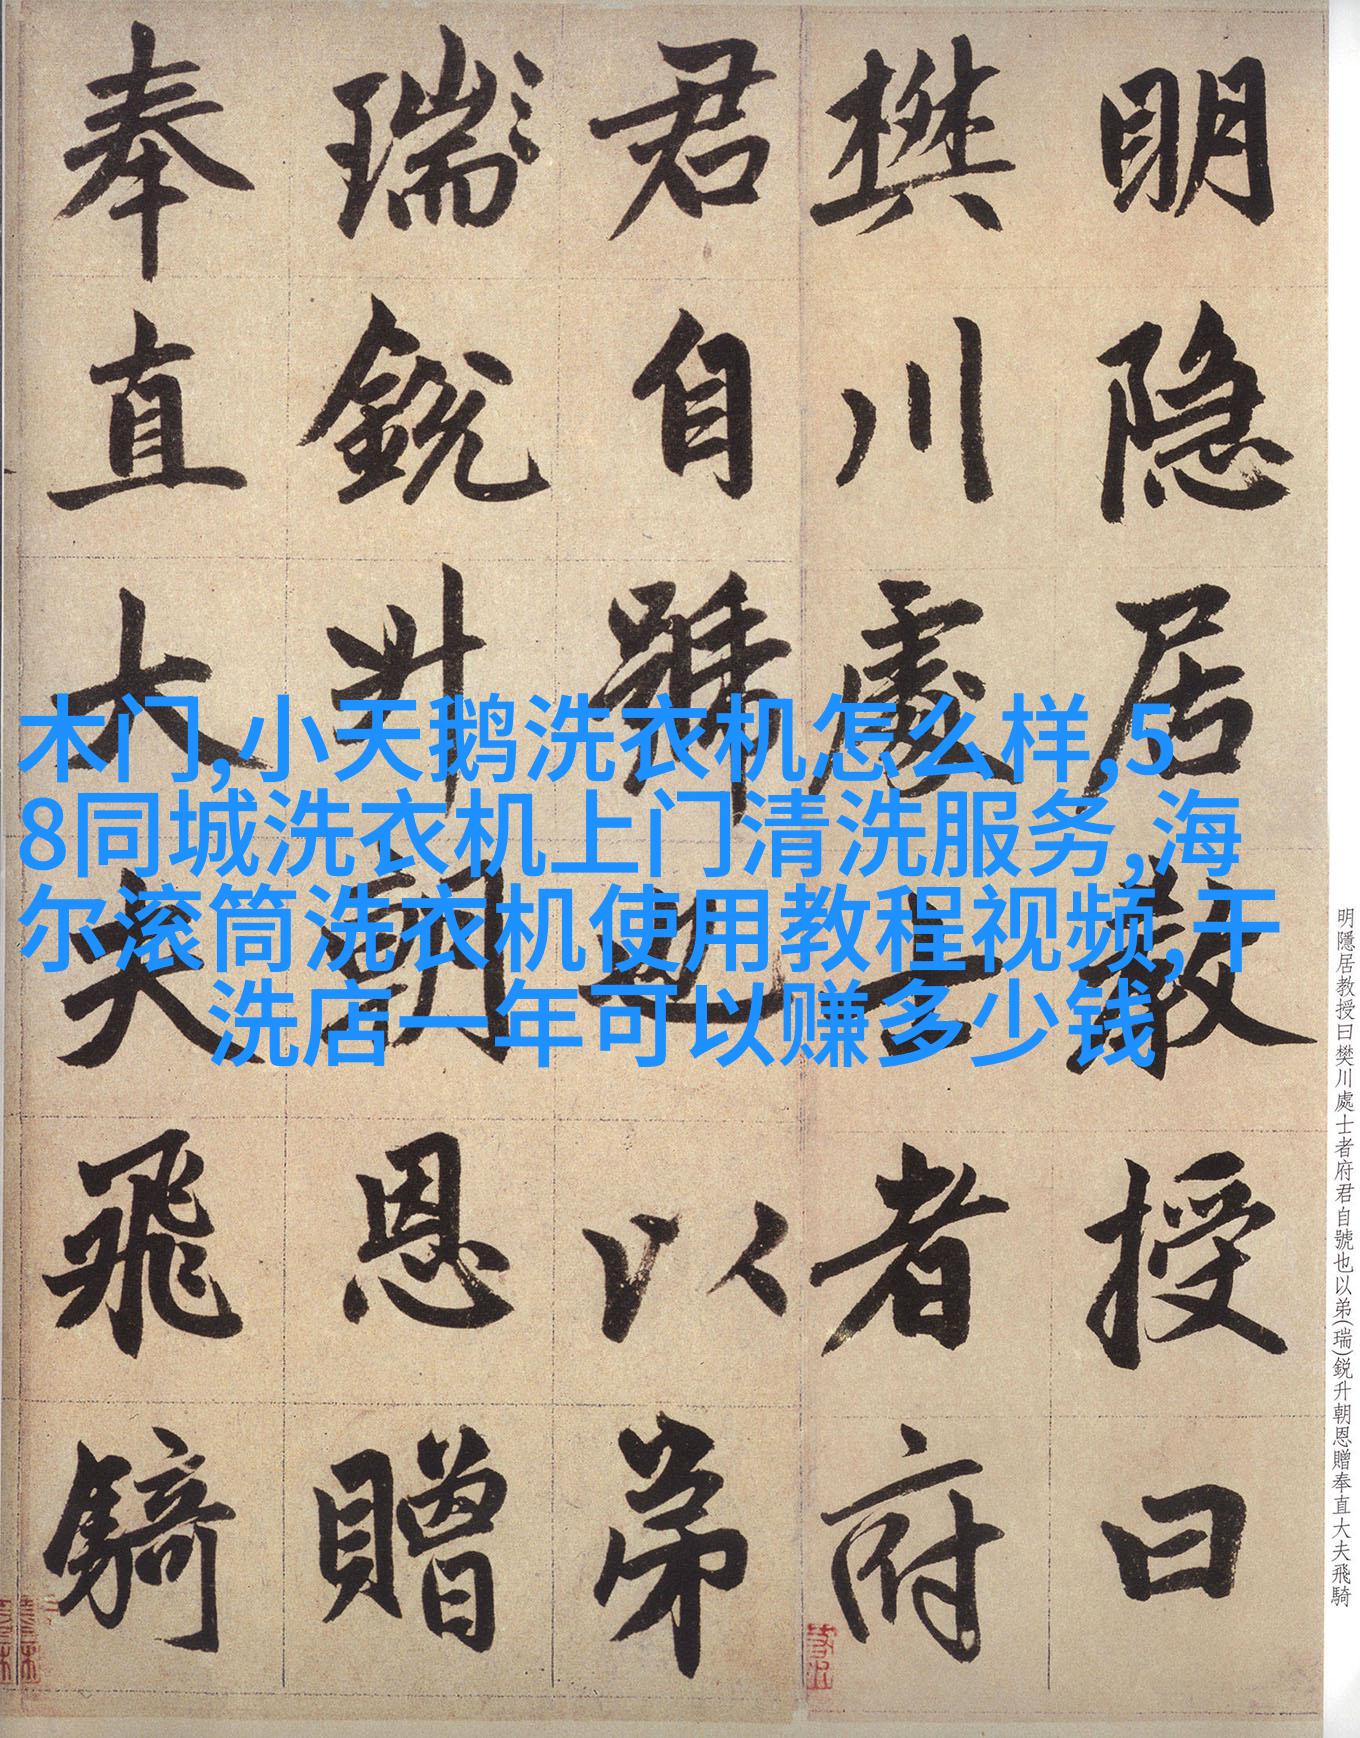 明隐居教授曰
樊川處士者府
君自號也以弟
瑞銳升朝恩贈
奉直大夫飛騎
木门,小天鹅洗衣机怎么样,5
8同城洗衣机上门清洗服务,海
尔滚筒洗衣机使用教程视频,干
洗店一年可以赚多少钱
明隱居教授曰樊川處士者府君自號也以弟(瑞)銳升朝恩贈奉直大夫飛騎